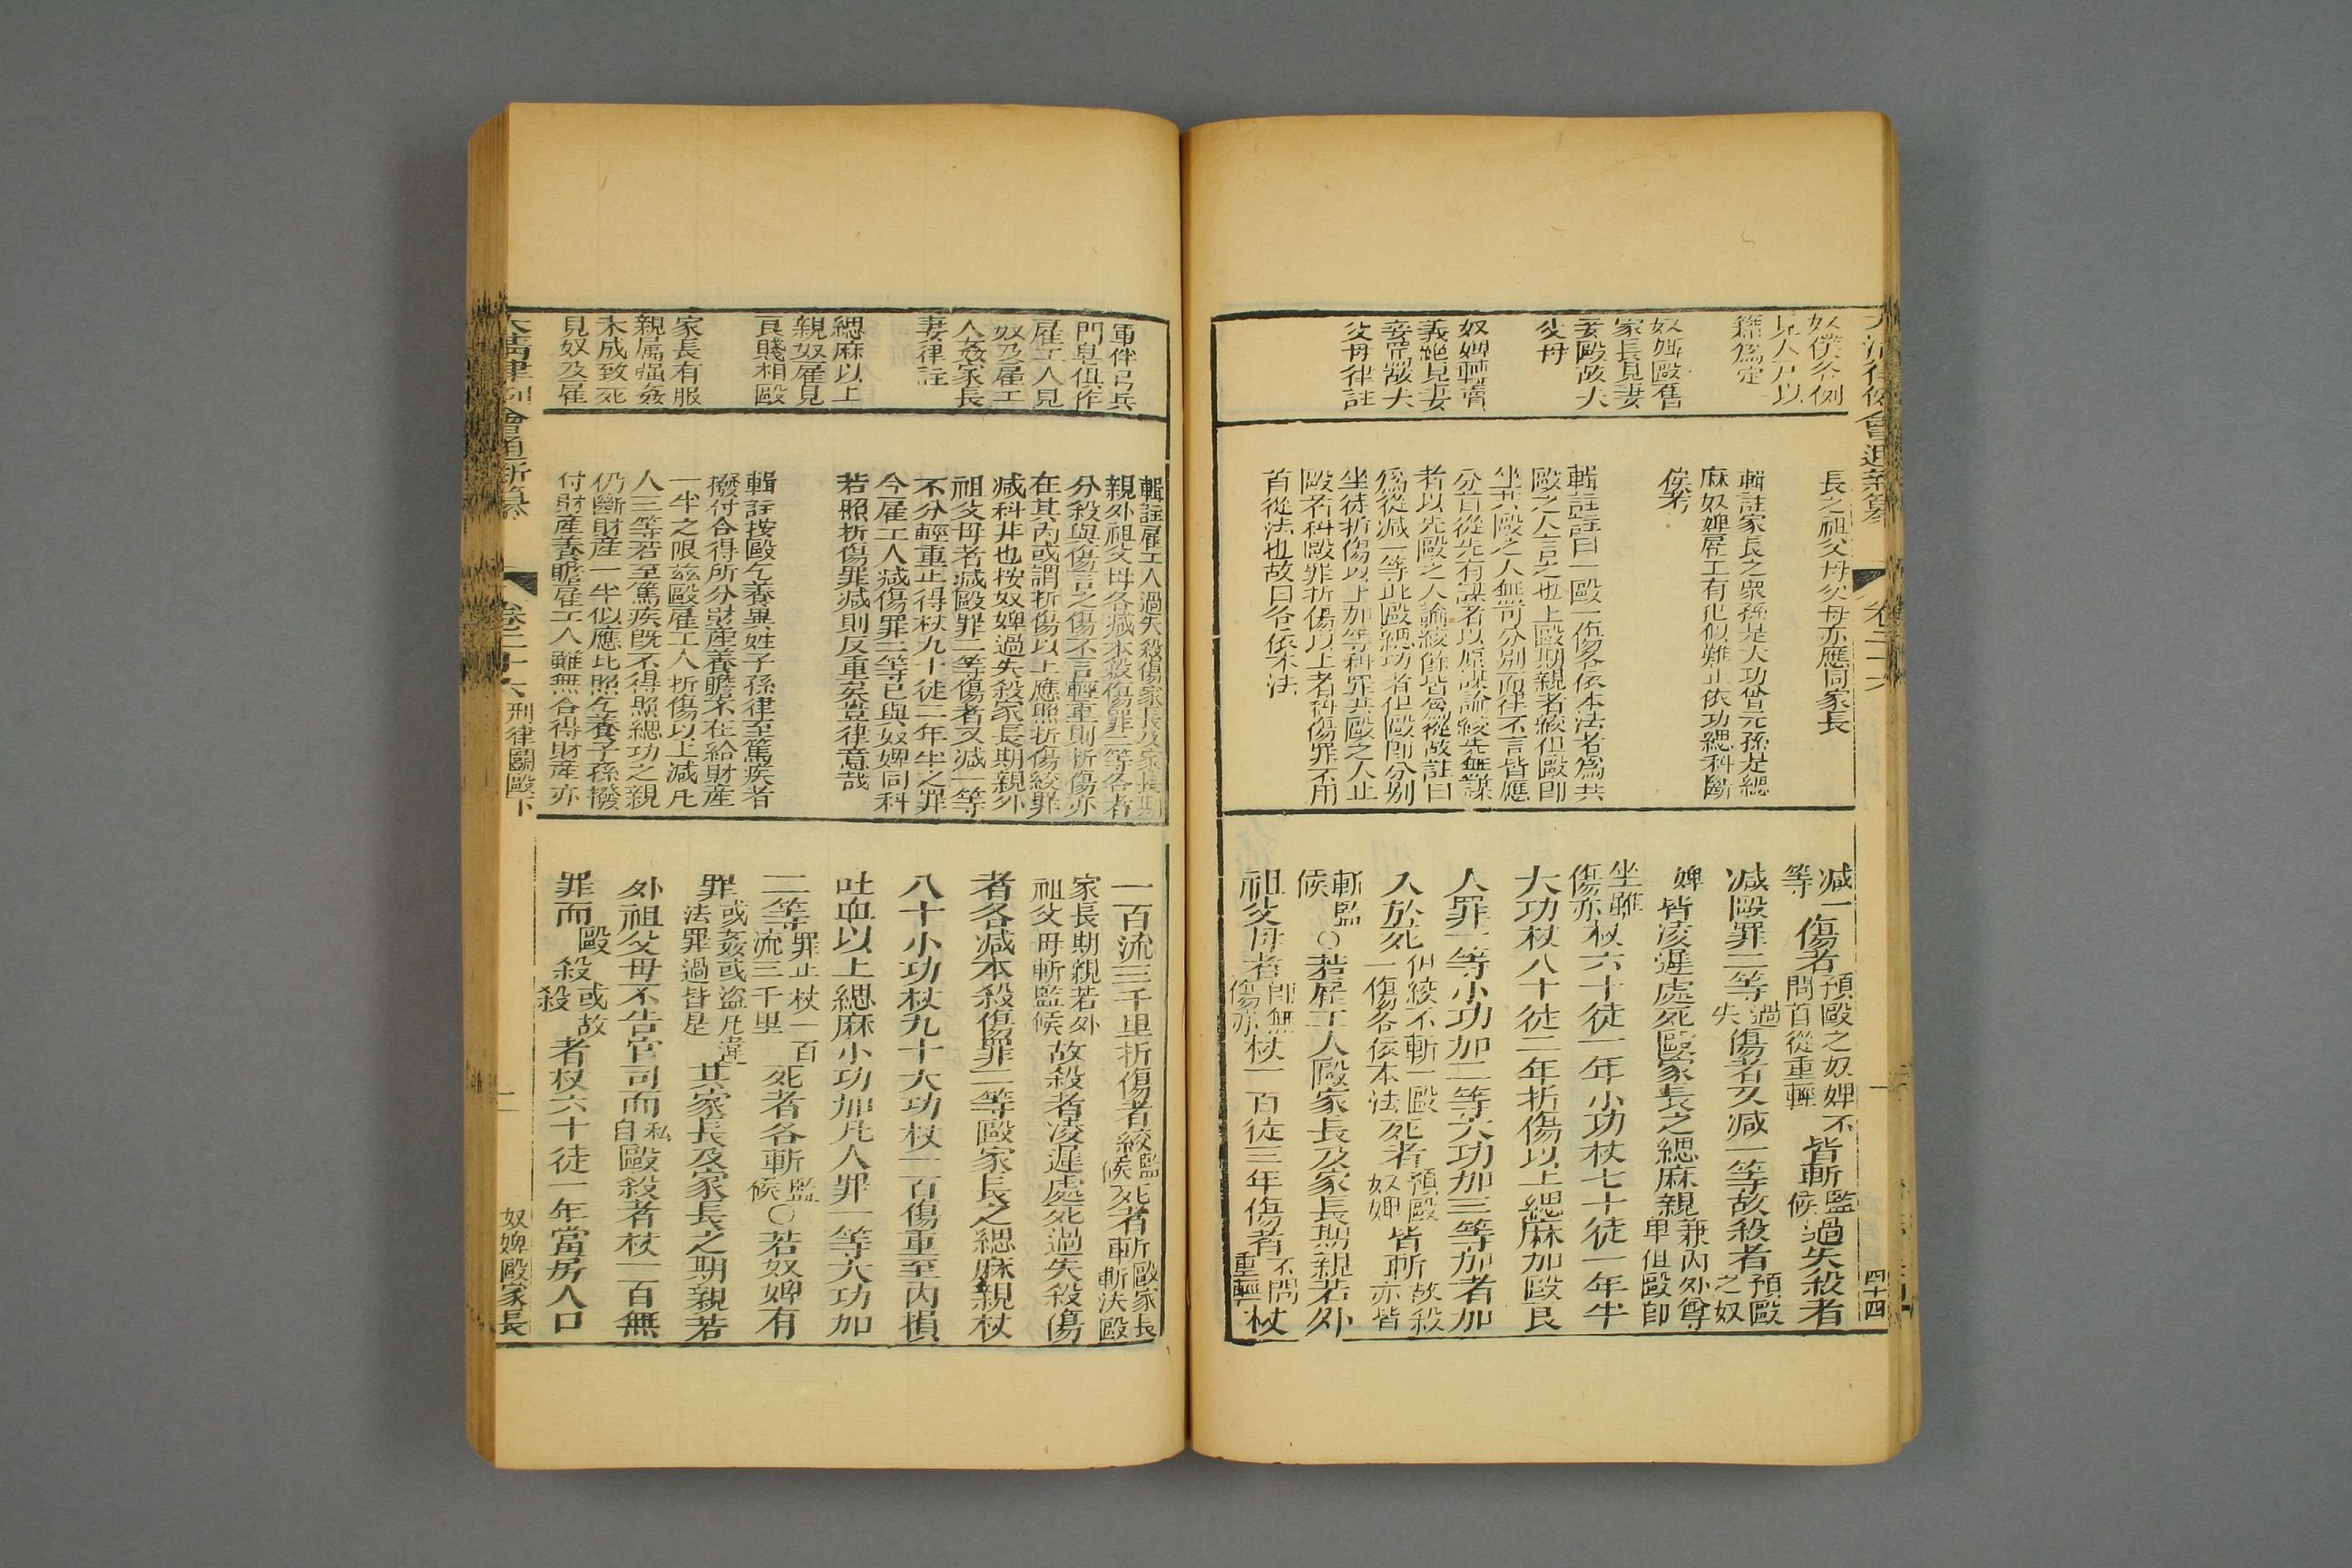 大清律例會通新纂
卷二十六
四十四
奴僕名例
以人戶以
籍爲定
奴婢毆舊
家長見妻
妾毆故夫
父母
奴婢轉賣
義絕見妻
妾毆故夫
父母律註
長之祖父母父母亦應同家長
輯註家長之衆孫是大功曾元孫是緦
麻奴婢雇工有犯似難止依功緦科斷
俟考
輯註註曰一毆一傷各依本法者爲共
毆之人言之也上毆期親者絞但毆卽
坐共毆之人無可分別而律不言皆應
分首從先有謀者以原謀論絞先無謀
者以先毆之人論絞餘皆爲從故註曰
爲從減一等此毆緦功者但毆卽分別
坐徒折傷以上加等科罪共毆之人止
毆者科毆罪折傷以上者科傷罪不用
首從法也故曰各依本法
減一
等
傷者
預毆之奴婢不
問首從重輕
皆斬
監
候
過失殺者
減毆罪二等
過
失
傷者又減一等故殺者
預毆
之奴
婢
皆凌遲處死毆家長之緦麻親
兼內外尊
卑但毆卽
坐雖
傷亦
杖六十徒一年小功杖七十徒一年半
大功杖八十徒二年折傷以上緦麻加毆良
人罪一等小功加二等大功加三等加者加
入於死
但絞不斬一毆
一傷各依本法
死者
預毆
奴婢
皆斬
故殺
亦皆
斬監
候
○若雇工人毆家長及家長期親若外
祖父母者
卽無
傷亦
杖一百徒三年傷者
不問
重輕
杖
軍伴弓兵
門皂俱作
雇工人見
奴及雇工
人姦家長
妻律註
緦麻以上
親奴雇見
良賤相毆
家長有服
親屬强姦
未成致死
見奴及雇
輯註雇工人過失殺傷家長及家長期
親外祖父母各減本殺傷罪二等各者
分殺與傷言之傷不言輕重則折傷亦
在其內或謂折傷以上應照折傷絞罪
減科非也按奴婢過失殺家長期親外
祖父母者減毆罪二等傷者又減一等
不分輕重止得杖九十徒二年半之罪
今雇工人減傷罪二等已與奴婢同科
若照折傷罪減則反重矣豈律意哉
輯註按毆乞養異姓子孫律至篤疾者
撥付合得所分財產養贍不在給財產
一半之限茲毆雇工人折傷以上減凡
人三等若至篤疾旣不得照緦功之親
仍斷財產一半似應比照乞養子孫撥
付財產養贍雇工人雖無合得財產亦
一百流三千里折傷者絞
監
候
死者斬
毆家長
斬決毆
家長期親若外
祖父母斬監候
故殺者凌遲處死過失殺傷
者各減本殺傷罪二等毆家長之緦麻親杖
八十小功杖九十大功杖一百傷重至內損
吐血以上緦麻小功加凡人罪一等大功加
二等
罪止杖一百
流三千里
死者各斬
監
候
○若奴婢有
罪
或姦或盜凡違
法罪過皆是
其家長及家長之期親若
外祖父母不告官司而
私
自
毆殺者杖一百無
罪而
毆
殺
或故
殺
者杖六十徒一年當房人口
大清律例會通新纂
卷二十六
刑律鬬毆下
二
奴婢毆家長